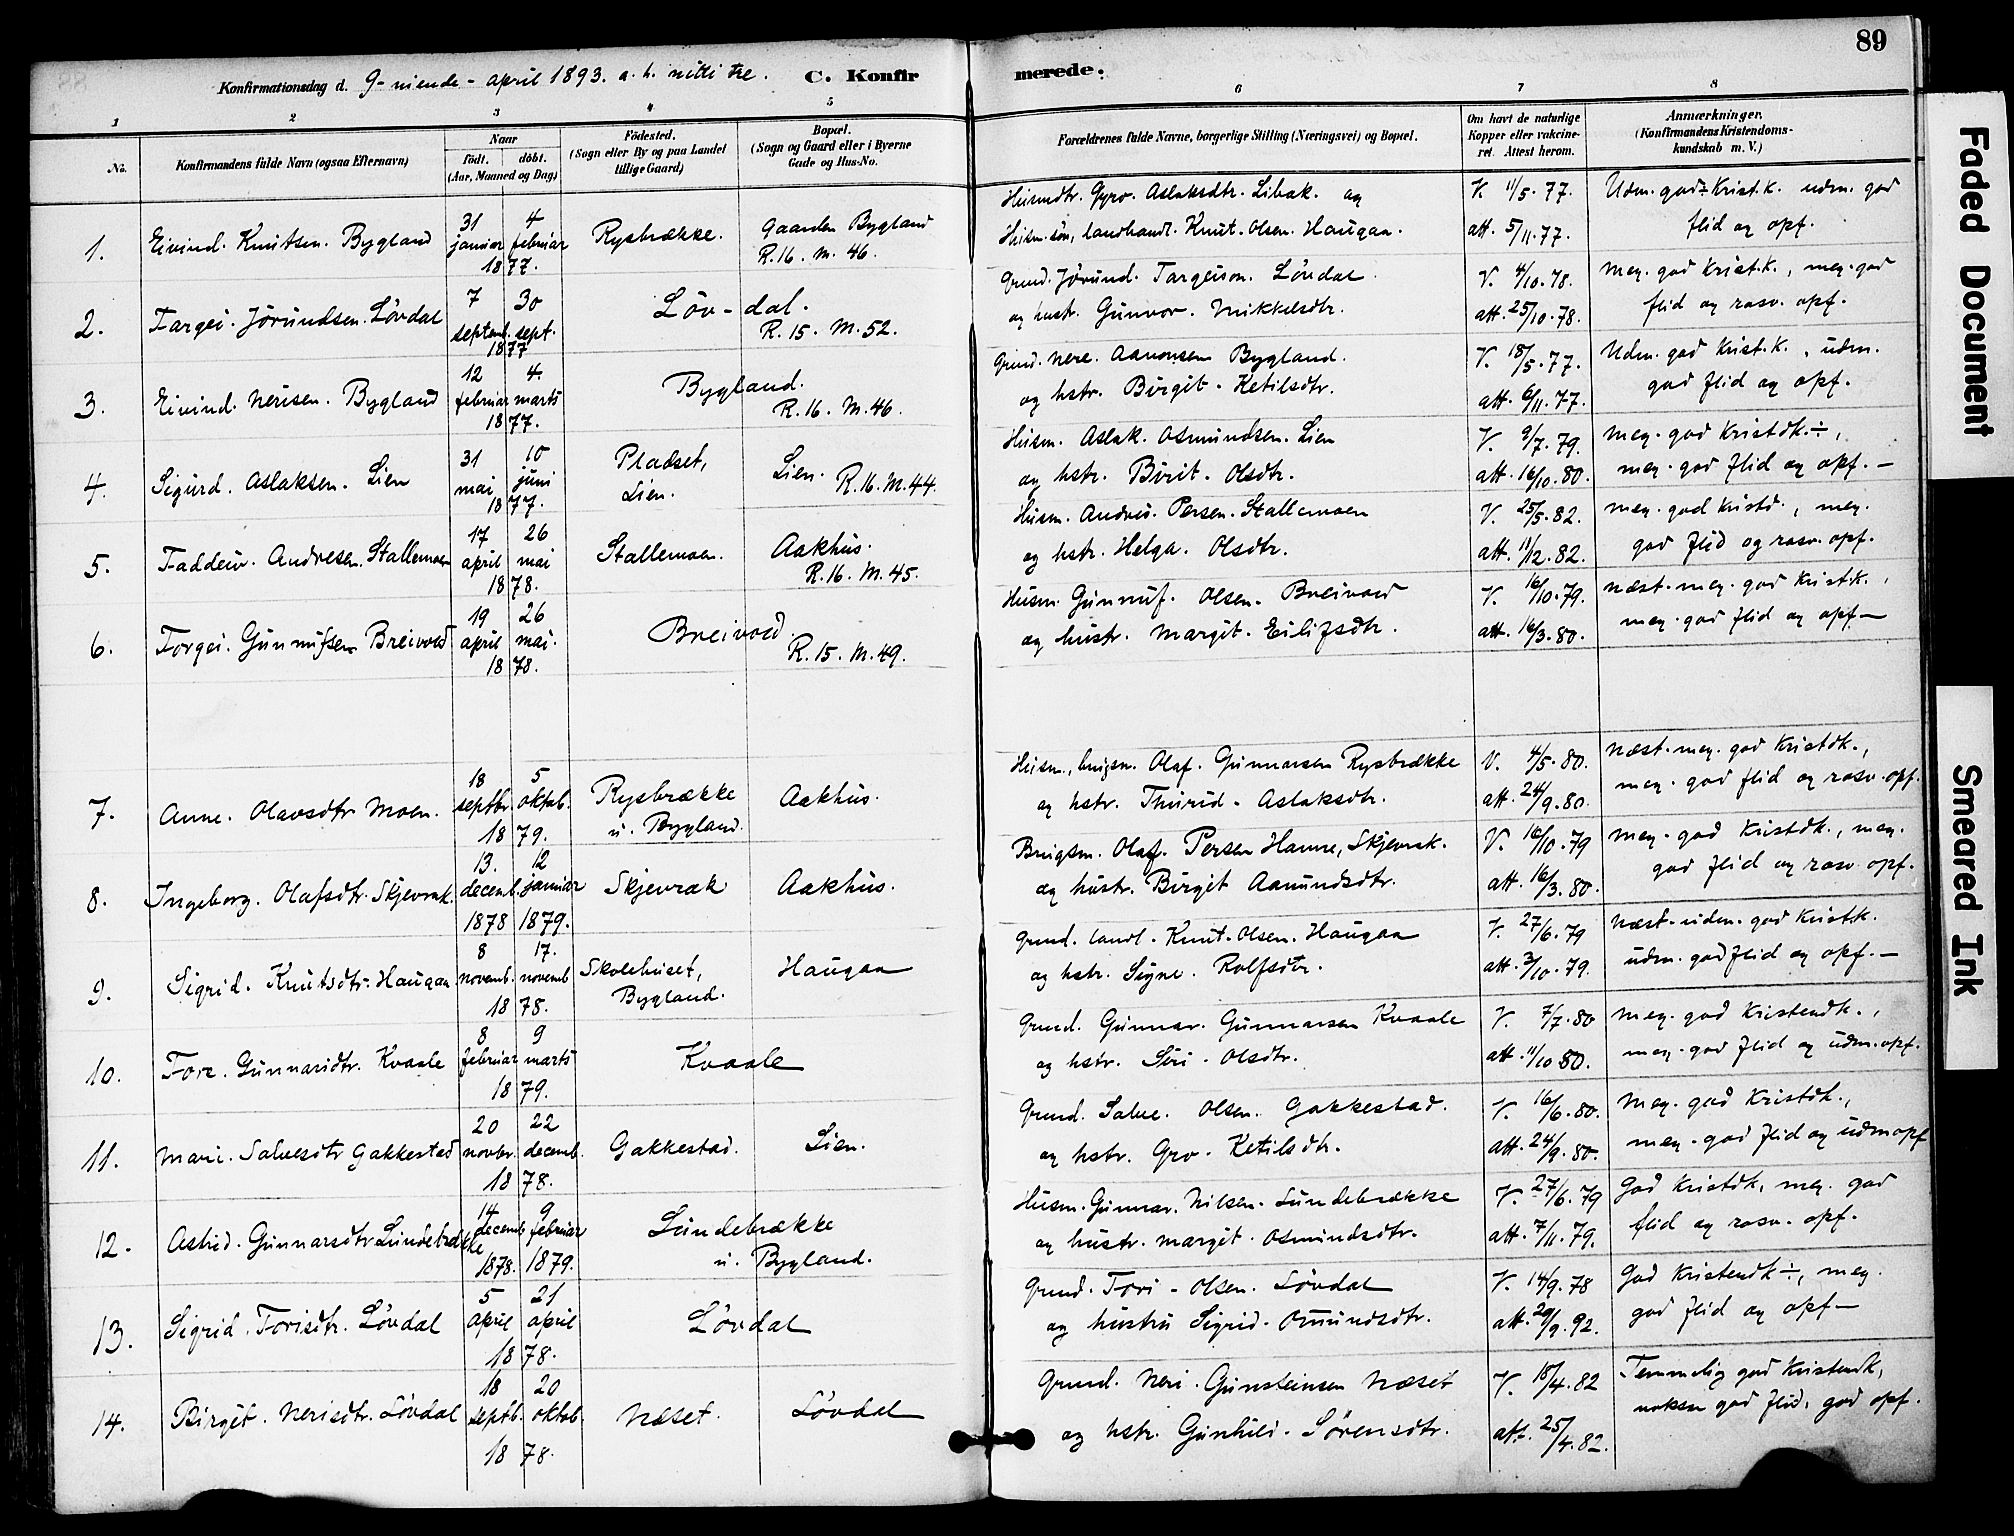 89
Konfirmationsdag d. 9 - niende - april 1893. a. h. nitti tre. C. Konfirmerede.
1 2 3 4 5 6 7 8
No.
Konfirmandens fulde Navn (ogsaa Efternavn)
Naar
født. døbt.
(Aar, Maaned og Dag)
Fødested.
(Sogn eller By og paa Landet
tillige Gaard)
Bopæl.
(Sogn og Gaard eller i Byerne
Gade og Hus-No.
Forældrenes fulde Navne, borgerlige Stilling (Næringsvei) og Bopæl.
Om havt de naturlige
Kopper eller vakcine-
ret. Attest herom.
Anmærkninger.
(Konfirmandens Kristendoms-
kundskab m. V.)
1. Eivind. Knutsen. Bygland
31 januar 4 februar 1877.
Rysbrække.
Gaarden Bygland
R. 16. M. 46.
Gyro. Aslaksdtr. Libak. og
landhandl. Knut. Olsen. Haugaa.
V. 11/5. 77.
att. 5/11. 77.
Udm. god ÷ Krist.k. udm. god
flid og opf.
2. Targei. Jörundsen. Lövdal
7 septemb. 30 sept. 1877
Löv-dal.
R. 15. M. 52.
Grund. Jörund. Targeison. Lövdal.
og hustr. Gunvor. Mikkelsdtr.
V. 4/10. 78.
att. 25/10. 78.
Meg. god Krist.k., meg. god
flid og rosv. opf.
3. Eivind. Nerisen. Bygland
12 februar 4. marts 1877.
Bygland.
R. 16. M. 46.
Grund. Nere. Aanonsen Bygland.
og hstr. Birgit. Ketilsdtr.
V. 18/5. 77.
att. 6/11. 77.
Udm. god Krist.k., udm.
god flid og opf.
4. Sigurd. Aslaksen. Lien
31 mai 10 juni 1877.
Pladset,
Lien.
Lien. R. 16. M. 44.
Husm. Aslak. Osmundsen. Lien
og hstr. Birit. Olsdtr.
V. 9/7. 79.
att. 16/10. 80.
Meg. god Kristdk. ÷,
meg. god flid og opf. —
5. Taddeiv. Andresen. Stallemoen
17 april 26 mai 1878.
Stallemoen.
Aakhus.
R. 16. M. 45.
Husm. Andres. Persen. Stallemoen
og hstr. Helga. Olsdtr.
V. 25/5. 82.
att. 11/12. 82.
Meg. god Kristd., meg.
god flid og rosv. opf.
6. Torgei. Gunnufsen Breivold
19 april 26 mai. 1878.
Breivold.
R. 15. M. 49.
Husm. Gunnuf. Olsen. Breivold
og hustr. Margit. Eilifsdtr.
V. 16/10. 79.
att. 16/3. 80.
Næst. meg. god Krist.k.,
meg. god flid og opf —
7. Anne. Olavsdtr Moen.
18 septbr. 5 oktob. 1879.
Rysbrække
u. Bygland.
Aakhus.
Husm., brugsm. Olaf. Gunnarsen Rysbrække
og hstr. Thurid. Aslaksdtr.
V. 4/5. 80.
att. 24/9. 80.
Næst. meg. god Kristdk.,
meg. god flid og rosv. opf.
8. Ingeborg. Olafsdtr. Skjevrak.
13. decemb. 1878 12 januar 1879.
Skjevrak
Aakhus.
Brugsm. Olaf. Persen Hamre, Skjevrak.
og hustr. Birgit Aanundsdtr.
V. 16/10. 79
att. 16/3. 80.
Meg. god Kristdk., meg.
god flid og rosv. opf.
9. Sigrid. Knutsdtr. Haugaa
8 novemb. 17. novemb 1878.
Skolehuset,
Bygland.
Haugaa
Grund. landl. Knut. Olsen. Haugaa
og hstr. Signe. Rolfsdtr.
V. 27/6. 79
att. 3/10. 79.
Næst. udm. god Krist.k.
udm. god flid og opf. —
10. Tore. Gunnarsdtr. Kvaale
8 februar 9 marts 1879.
Kvaale
Grund. Gunnar. Gunnarsen Kvaale
og hstr. Siri. Olsdtr.
V. 7/7. 80
att. 11/10 80.
Meg. god Kristendk.,
meg. god flid og udm. opf.
11. Mari. Salvesdtr Gakkestad
20 novbr. 22 decemb. 1878.
Gakkestad.
Lien.
Grund. Salve. Olsen. Gakkestad.
og hstr. Gro. Ketilsdtr.
V. 16/6. 80.
att. 24/9. 80.
Meg. god Kristdk.,
meg. god flid og udm opf
12. Astrid. Gunnarsdtr Lundebrække
14 decemb 1878. 9 februar 1879.
Lundebrække
u. Bygland.
Husm. Gunnar. Nilsen. Lundebrække
og hustr. Margit. Osmundsdtr.
V. 27/6. 79
att. 7/11. 79.
God Kristdk, meg. god
flid og rosv. opf.
13. Sigrid. Torisdtr. Lövdal
5 april 21 april 1878.
Lövdal
Grund. Tori - Olsen. Lövdal
og hustru Sigrid. Omundsdtr.
V. 14/9. 78
att. 29/9. 92.
God Kristendk ÷, meg.
god flid og opf —
14. Birgit. Nerisdtr. Lövdal
18 septb. 20 oktob. 1878.
Næset.
Lövdal
Grund. Neri. Gunsteinsen Næset
og hstr. Gunhild. Sörensdtr.
V. 18/4. 82
att. 25/4. 82.
Temmelig god Kristendk,
noksaa god flid, god opf.
Faded Document
Smeared Ink